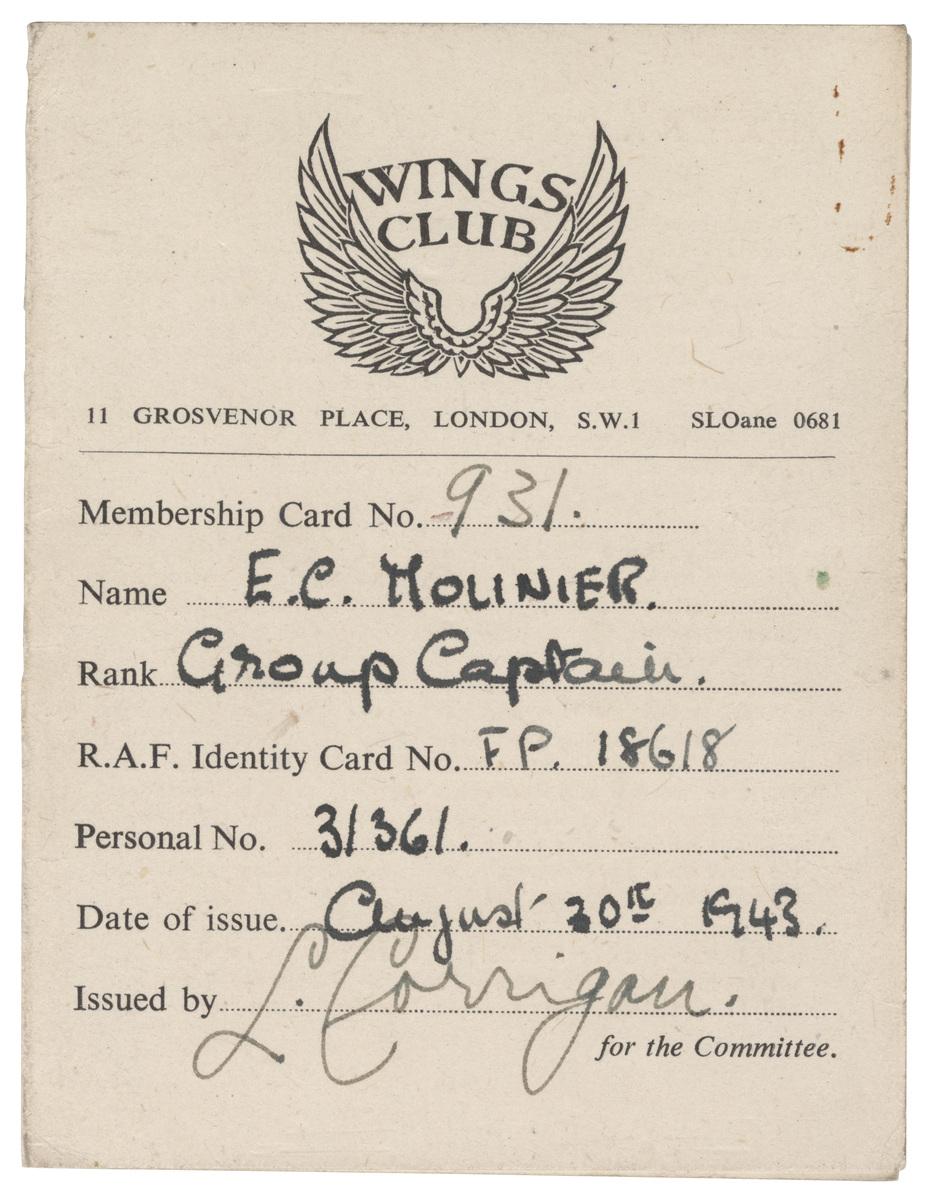 WINGS
CLUB
11 GROSVENOR PLACE, LONDON, S.W.1 SLOane 0681
Membership Card No. 931.
Name E.C. MOLINIER.
Rank Group Captain.
R.A.F. Identity Card No. FP. 18618
Personal No. 31361.
Date of issue. August 20th 1943.
Issued by L. Corrigan.
for the Committee.